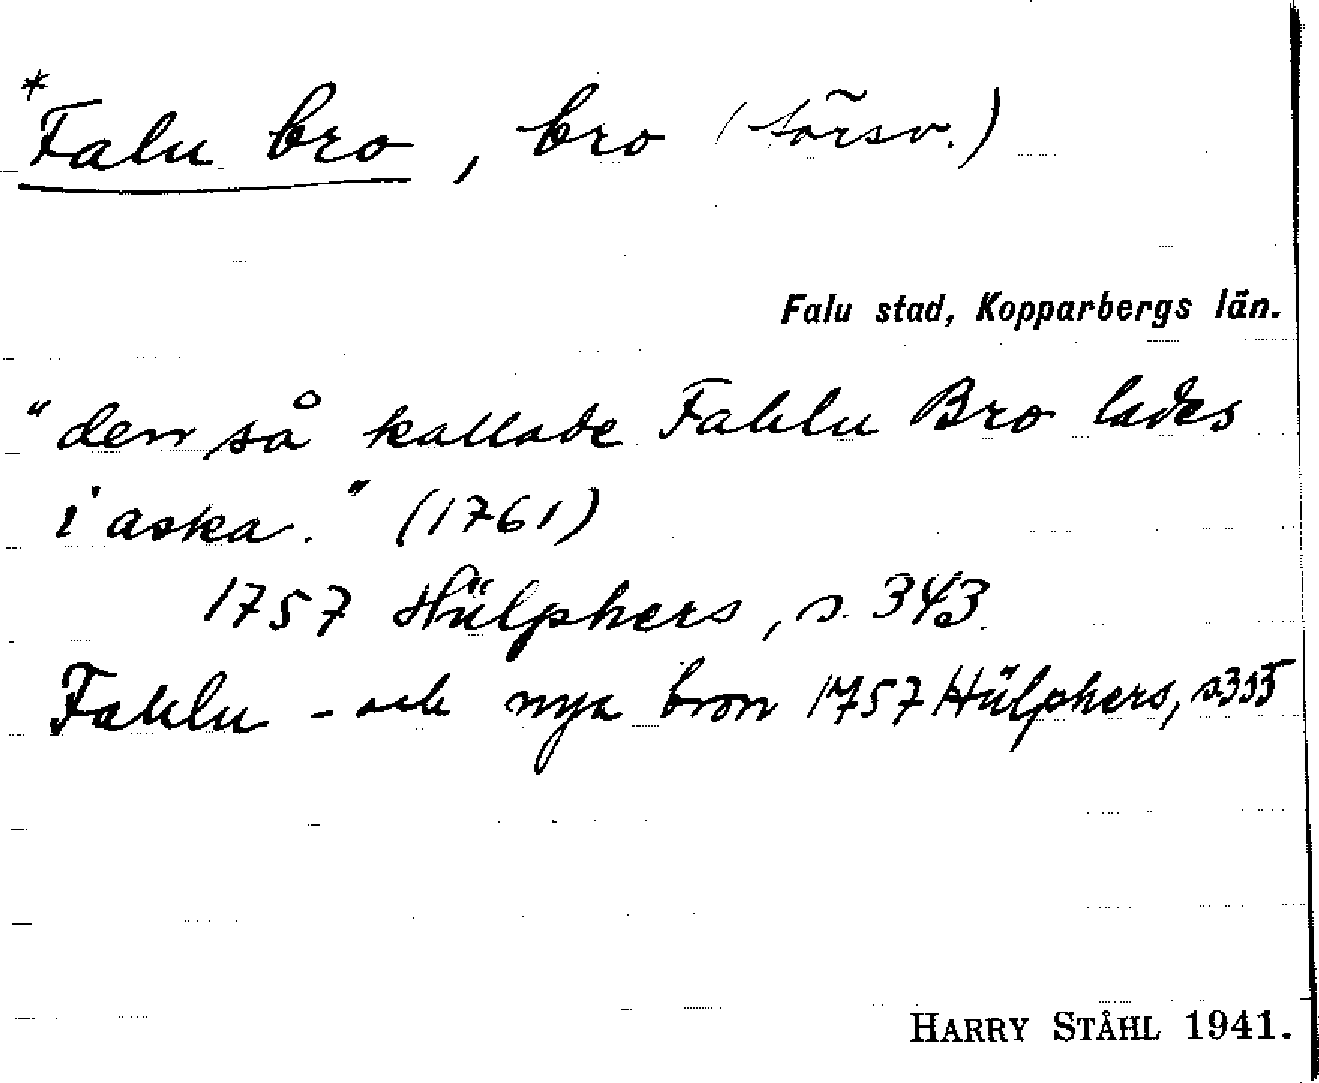 *Falu bro, bro (försv.)
Falu stad, Kopparbergs län.
"den så kallade Fahlu Bro lades
i aska." (1761)
1757 Hülphers, s. 343.
Fahlu - och nya bron 1757 Hülphers, s 335
HARRY STÅHL 1941.